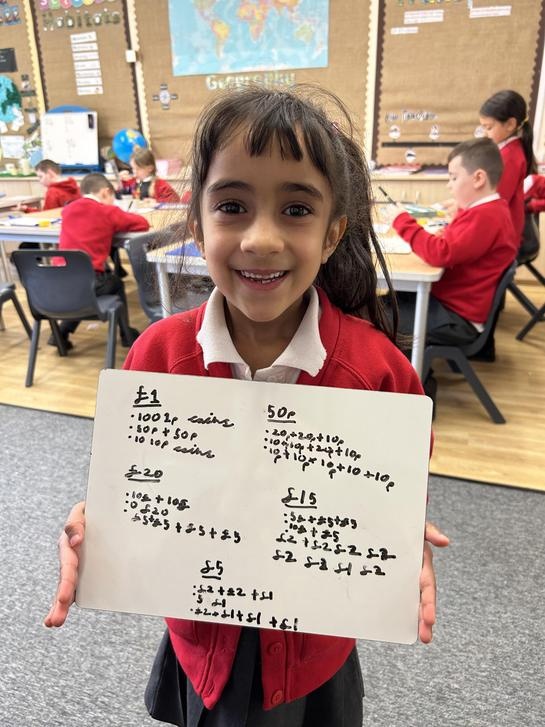 Geography
£1
• 100 1p coins
• 50p + 50p
• 10 10p coins
50p
• 20p + 20p + 10p
• 10p + 10p + 20p + 10p
• 10p + 10p + 10p + 10 + 10p
£20
• 10£ + 10£
• £5 + £5 + £5 + £5
£15
• 5£ + £5 + £5
• 10£ + £5
£2 + £2 £2 £2
£2 £2 £1 £2
£5
• £2 + £2 + £1
5 £1
• £2 + £1 + £1 + £1